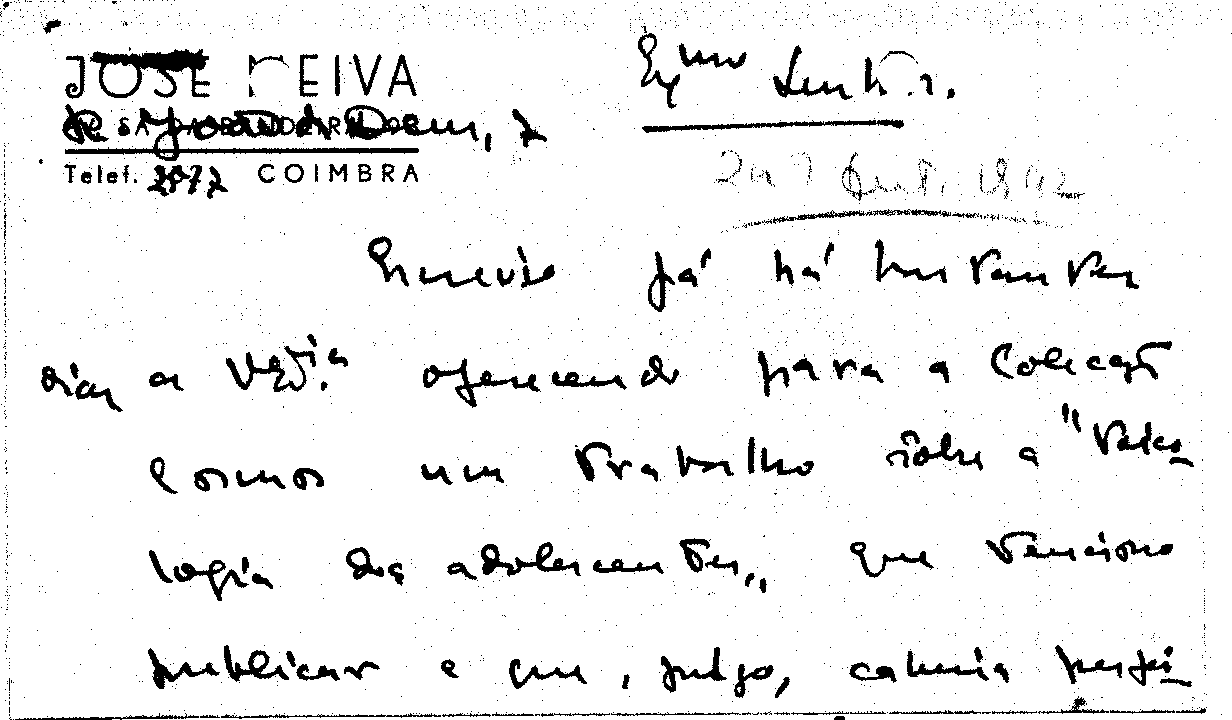 JOSÉ NEIVA
R. João de Deus, 7
Telef. 2077 COIMBRA
Exmo Senhor.
27 Out. 1942
Escrevi já há bastantes
dias a V. oferecendo para a Colecção
Cosmos um trabalho sobre a "
logia dos adolescentes", que tenciono
publicar e que, julgo, caberia perfei-